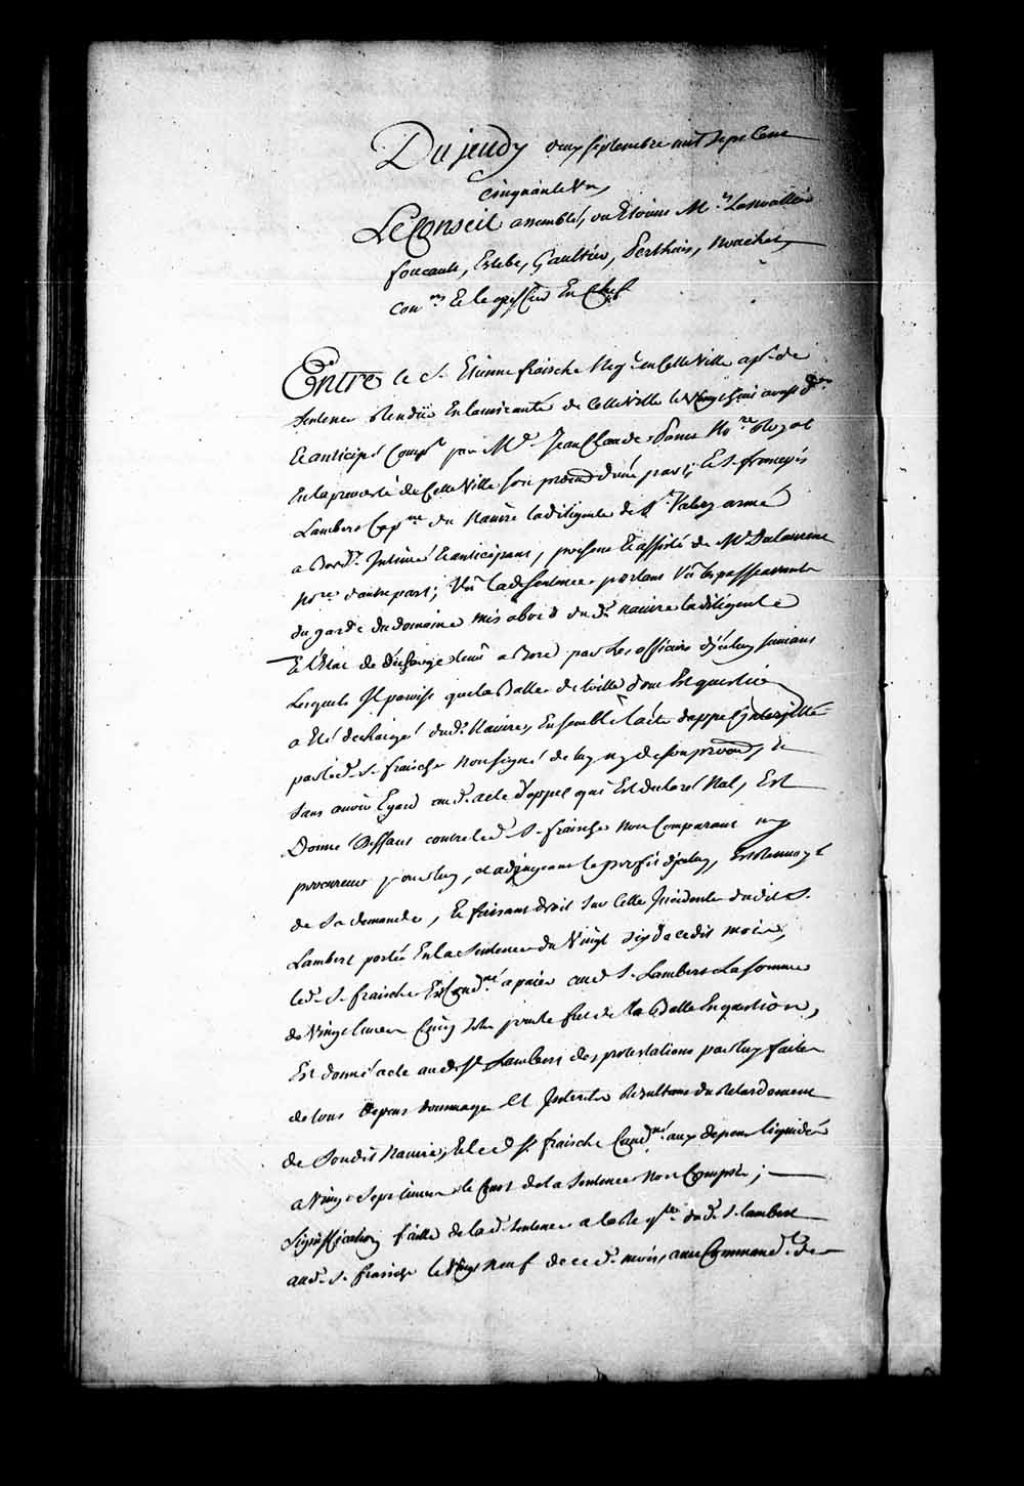 Du jeudy deux septembre mil sept cent
cinquante Un
Le Conseil assemblé, ou Etoient Mrs Lanoullier
foucault, Estebe, Gaultier, Perthuis, Nouchet,
coners Et le greffier En Chef
Entre le Sr. Etienne fraische Negt. en Cette Ville apt. de
Sentence Rendüe En lamirauté de Cette Ville le Vingt Six aoust dr.
Et anticipé Compt. par Me. Jean Claude Panet Nore. Royal
En la prevosté de Cette Ville son procur. d'une part; Et S. françois
Lambert Capne. du Navire la diligente de St. Valery armé
a Bordx. Intimé Et anticipant, present Et assisté de Me Dulaurent
Nore. d'autre part; Vû lade Sentence portant Vû le passeavant
du garde du domaine mis abord du d. navire la diligente
Et l'Etat de décharge tenû a Bord par les officiers d'jceluy suivant
Lesquels Il paroist que la Balle de toille dont Est question
a Eté dechargé dud. Navire, Ensemble l'acte d'appel Interjetté
par led. S. fraische Non signé de luy ny de son procur.,
Sans avoir Egard aud. acte d'appel qui Est declaré Nul, Est
Donné Deffaut contre led. S. fraische Non Comparant ny
procureur pour luy, et adjugeant le profit d'jceluy,
de Sa demande, Et faisant droit Sur Celle Incidente dudit S.
Lambert portée En la Sentence du Vingt Six de cedit mois,
led. S. fraische Est Condné. a païer aud. S. Lambert La Somme
de Vingt livres Cinq Sols pour le fret de la Balle En question,
Est donné acte aud. Sr. Lambert des protestations par luy faites
de tous depens dommages Et Interets Resultans du Retardement
de Soudit Navire, Et led. Sr. fraische Condné. aux depens liquidés
a Vingt Sept livres le Cout de la Sentence Non Compris;
Signiffication faitte de lad. Sentence a la Reqte. dud. S. lambert
aud. S. fraische le Vingt Neuf de ced. mois, avec Commandt. de